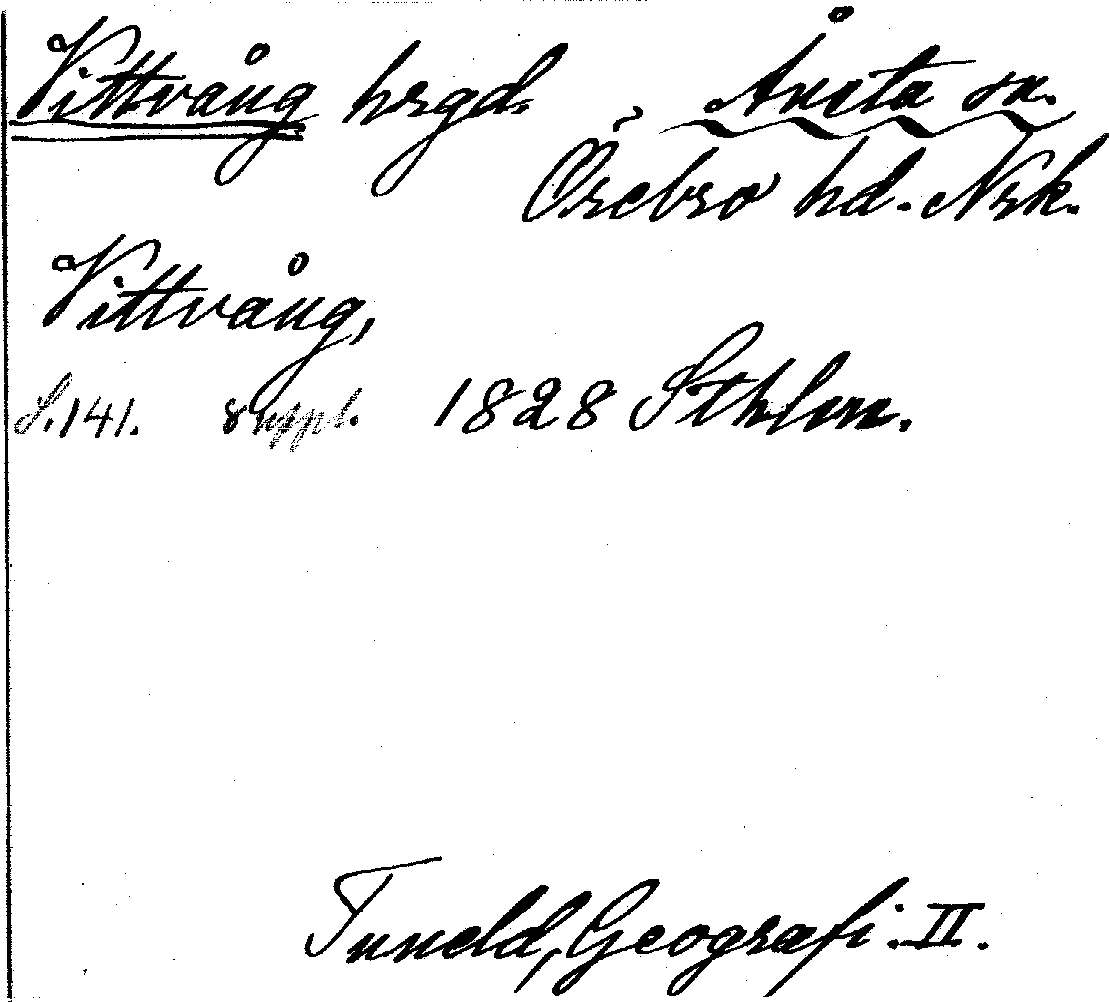 Vittvång hrgd. Ånsta sn.
Örebro hd. Nrk.
Vittvång,
S. 141. suppl. 1828 Sthlm.
Tuneld, Geografi. II.